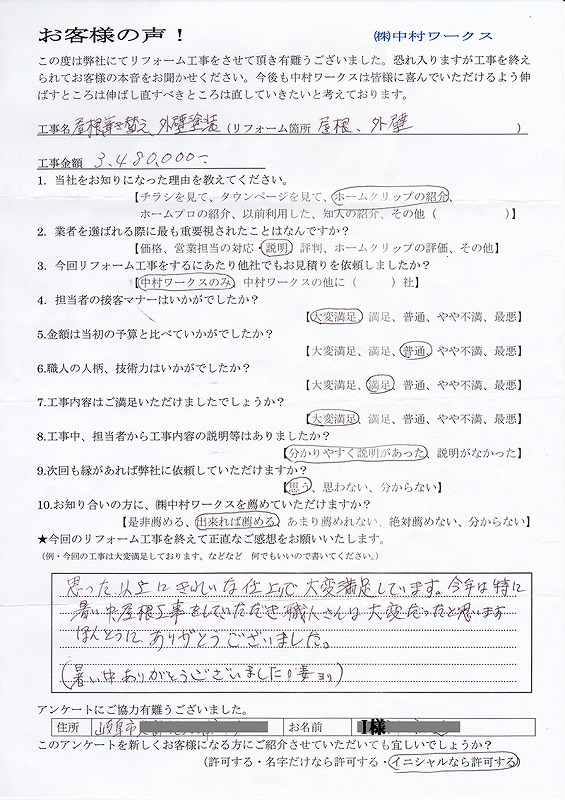 お客様の声！ ㈱中村ワークス
この度は弊社にてリフォーム工事をさせて頂き有難うございました。恐れ入りますが工事を終え
られてお客様の本音をお聞かせください。今後も中村ワークスは皆様に喜んでいただけるよう伸
ばすところは伸ばし直すべきところは直していきたいと考えております。
工事名 屋根葺き替え 外壁塗装 (リフォーム箇所 屋根、外壁 )
工事金額 3,480,000ー
1. 当社をお知りになった理由を教えてください。
【チラシを見て、タウンページを見て、ホームクリップの紹介、
ホームプロの紹介、以前利用した、知人の紹介、その他（ ）】
2. 業者を選ばれる際に最も重要視されたことはなんですか？
【価格、営業担当の対応・説明 評判、ホームクリップの評価、その他】
3. 今回リフォーム工事をするにあたり他社でもお見積りを依頼しましたか？
【中村ワークスのみ、中村ワークスの他に（ ）社】
4. 担当者の接客マナーはいかがでしたか？
【大変満足、満足、普通、やや不満、最悪】
5.金額は当初の予算と比べていかがでしたか？
【大変満足、満足、普通、やや不満、最悪】
6.職人の人柄、技術力はいかがでしたか？
【大変満足、満足、普通、やや不満、最悪】
7.工事内容はご満足いただけましたでしょうか？
【大変満足、満足、普通、やや不満、最悪】
8.工事中、担当者から工事内容の説明等はありましたか？
【分かりやすく説明があった、説明がなかった】
9.次回も縁があれば弊社に依頼していただけますか？
【思う、思わない、分からない】
10.お知り合いの方に、㈱中村ワークスを薦めていただけますか？
【是非薦める、出来れば薦める、あまり薦めれない、絶対薦めない、分からない】
★今回のリフォーム工事を終えて正直なご感想をお願いいたします。
(例・今回の工事は大変満足しております。などなど 何でもいいので書いてください。)
思った以上にきれいな仕上りで大変満足しています。今年は特に
暑い中屋根工事をしていただき職人さんは大変だったと思います
ほんとうにありがとうございました。
(暑い中ありがとうございました!妻より)
アンケートにご協力有難うございました。
住所 岐阜市 お名前 I様
このアンケートを新しくお客様になる方にご紹介させていただいても宜しいでしょうか？
(許可する・名字だけなら許可する・イニシャルなら許可する)